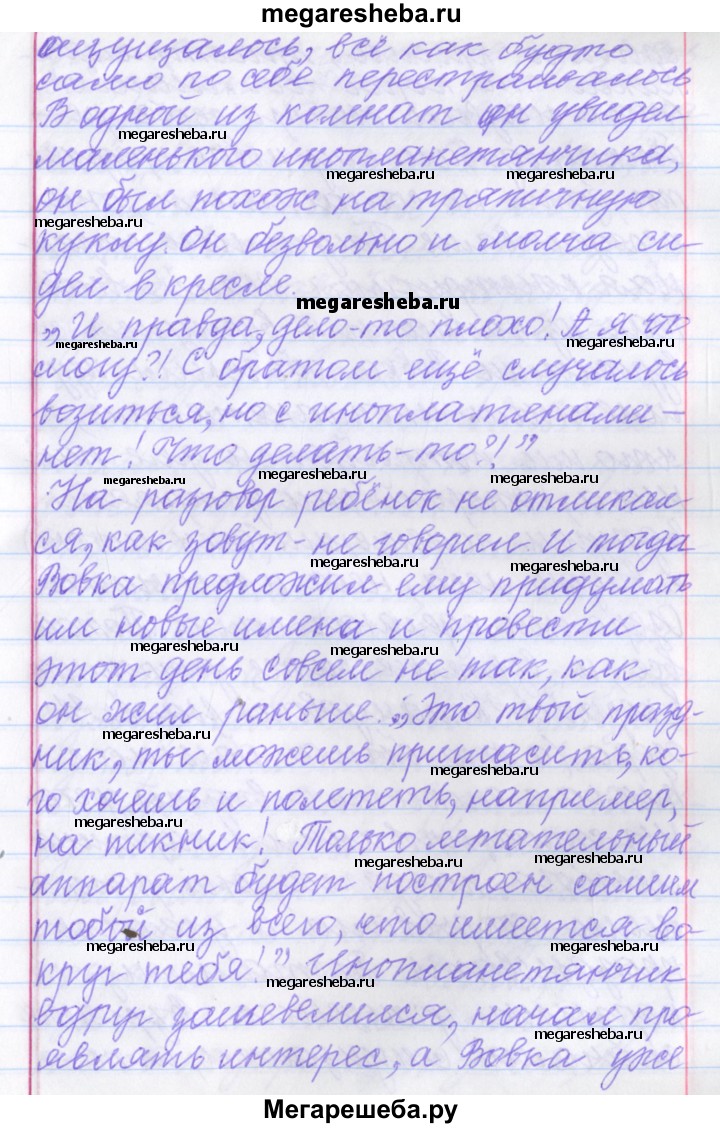 megaresheba.ru
ощущалось, всё как будто
само по себе перестраивалось
В одной из комнат он увидел
megaresheba.ru
маленького инопланетянчика,
megaresheba.ru megaresheba.ru
он был похож на тряпичную
megaresheba.ru
куклу. Он безвольно и молча си-
дел в кресле.
megaresheba.ru
„И правда, дело-то плохо! А я что
megaresheba.ru megaresheba.ru
могу?! С братом ещё случалось
возиться, но с иноплатянами -
нет! Что делать-то?!”
megaresheba.ru megaresheba.ru megaresheba.ru
На разговор ребёнок не откликал-
ся, как зовут - не говорил. И тогда
megaresheba.ru megaresheba.ru
Вовка предложил ему придумать
им новые имена и провести
megaresheba.ru megaresheba.ru
этот день совсем не так, как
он жил раньше. „Это твой празд-
megaresheba.ru
ник, ты можешь пригласить, ко-
megaresheba.ru
го хочешь и полететь, например,
megaresheba.ru
на пикник! Только летательный
megaresheba.ru megaresheba.ru
аппарат будет построен самим
тобой из всего, что имеется во-
megaresheba.ru megaresheba.ru
круг тебя!” Инопланетянчик
megaresheba.ru
вдруг зашевелился, начал про-
megaresheba.ru
являть интерес, а Вовка уже
Мегарешеба.ру